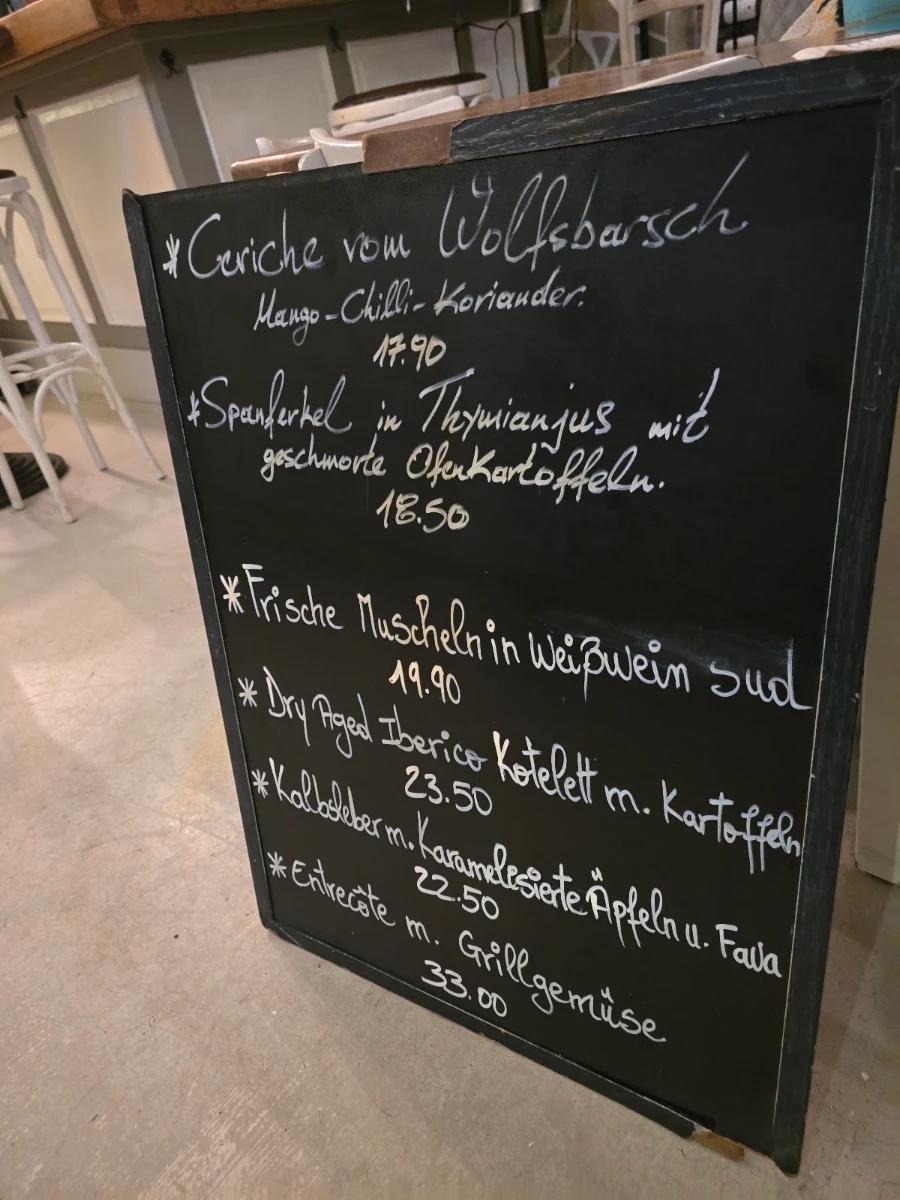 * Ceriche vom Wolfsbarsch
Mango-Chilli-Koriander.
17.90
* Spanferkel in Thymianjus mit
geschmorte Ofenkartoffeln.
18.50
* Frische Muscheln in Weißwein Sud
19.90
* Dry Aged Iberico Kotelett m. Kartoffeln
23.50
* Kalbsleber m. Karamelisierte Äpfeln u. Fava
22.50
* Entrecôte m. Grillgemüse
33.00